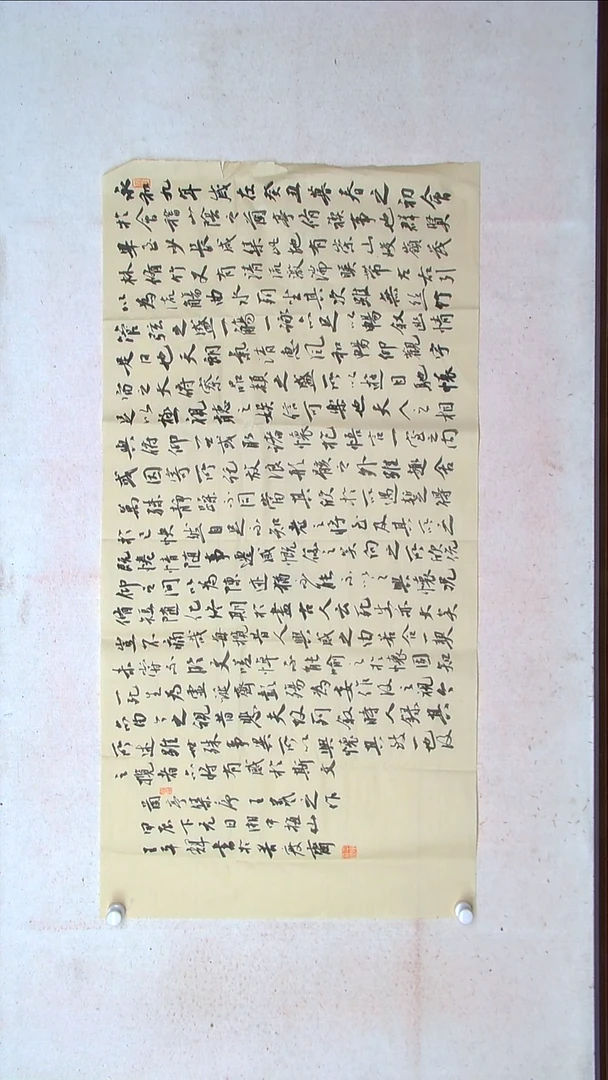 永和九年歲在癸丑暮春之初會
於會稽山陰之蘭亭脩稧事也群賢
畢至少長咸集此地有崇山峻嶺茂
林脩竹又有清流激湍暎帶左右引
以為流觴曲水列坐其次雖無絲竹
管弦之盛一觴一詠亦足以暢叙幽情
是日也天朗氣清惠風和暢仰觀宇
宙之大俯察品類之盛所以遊目馳懷
足以極視聽之娛信可樂也夫人之相
與俯仰一世或取諸懷抱悟言一室之內
或因寄所託放浪形骸之外雖趣舍
萬殊靜躁不同當其欣於所遇暫得
於己快然自足不知老之將至及其所之
既惓情隨事遷感慨係之矣向之所欣俛
仰之間以為陳迹猶不能不以之興懷況
脩短隨化終期於盡古人云死生亦大矣
豈不痛哉每攬昔人興感之由若合一契
未嘗不臨文嗟悼不能喻之於懷固知
一死生為虛誕齊彭殤為妄作後之視今
亦由今之視昔悲夫故列叙時人錄其
所述雖世殊事異所以興懷其致一也後
之攬者亦將有感於斯文
蘭亭集序王羲之作
甲辰下元日湘中梅山
王平輝書於